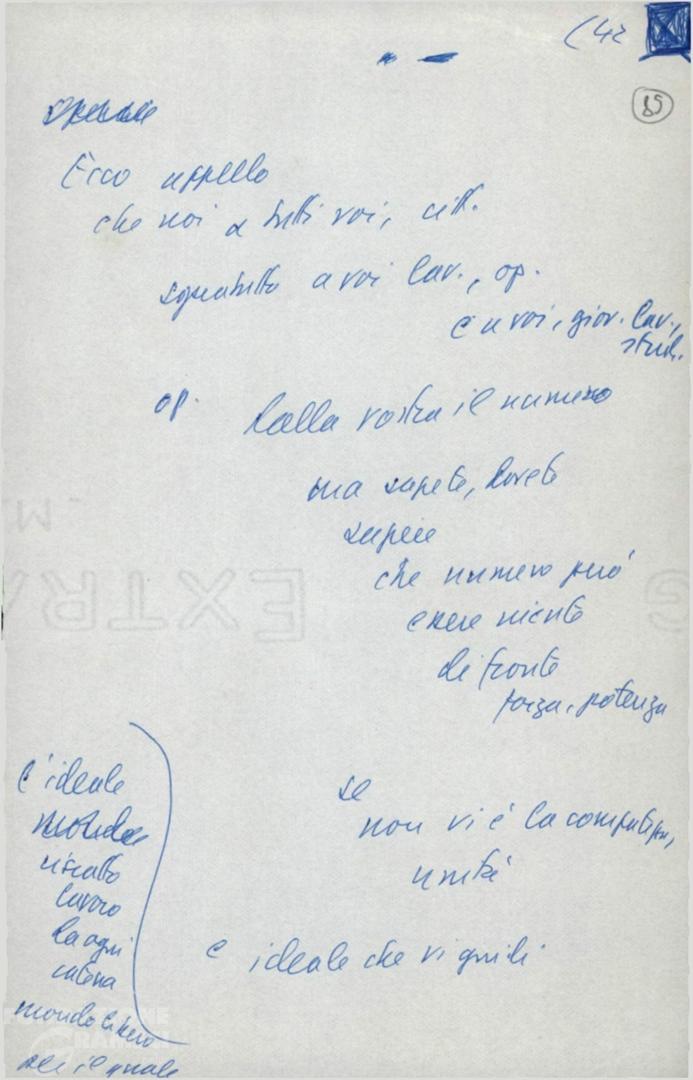 (42
85
Ecco appello
che noi a tutti voi, citt.
sopratutto a voi lav., op.
e a voi, giov. lav., stud.
op. dalla vostra il numero
ma sapete, dovete
sapere
che numero può
essere niente
di fronte
forza, potenza
se
non vi è la compattezza,
unità
e ideale che vi guidi
l'ideale
riscatto
lavoro
da ogni
catena
mondo libero
per il quale
EXTRA